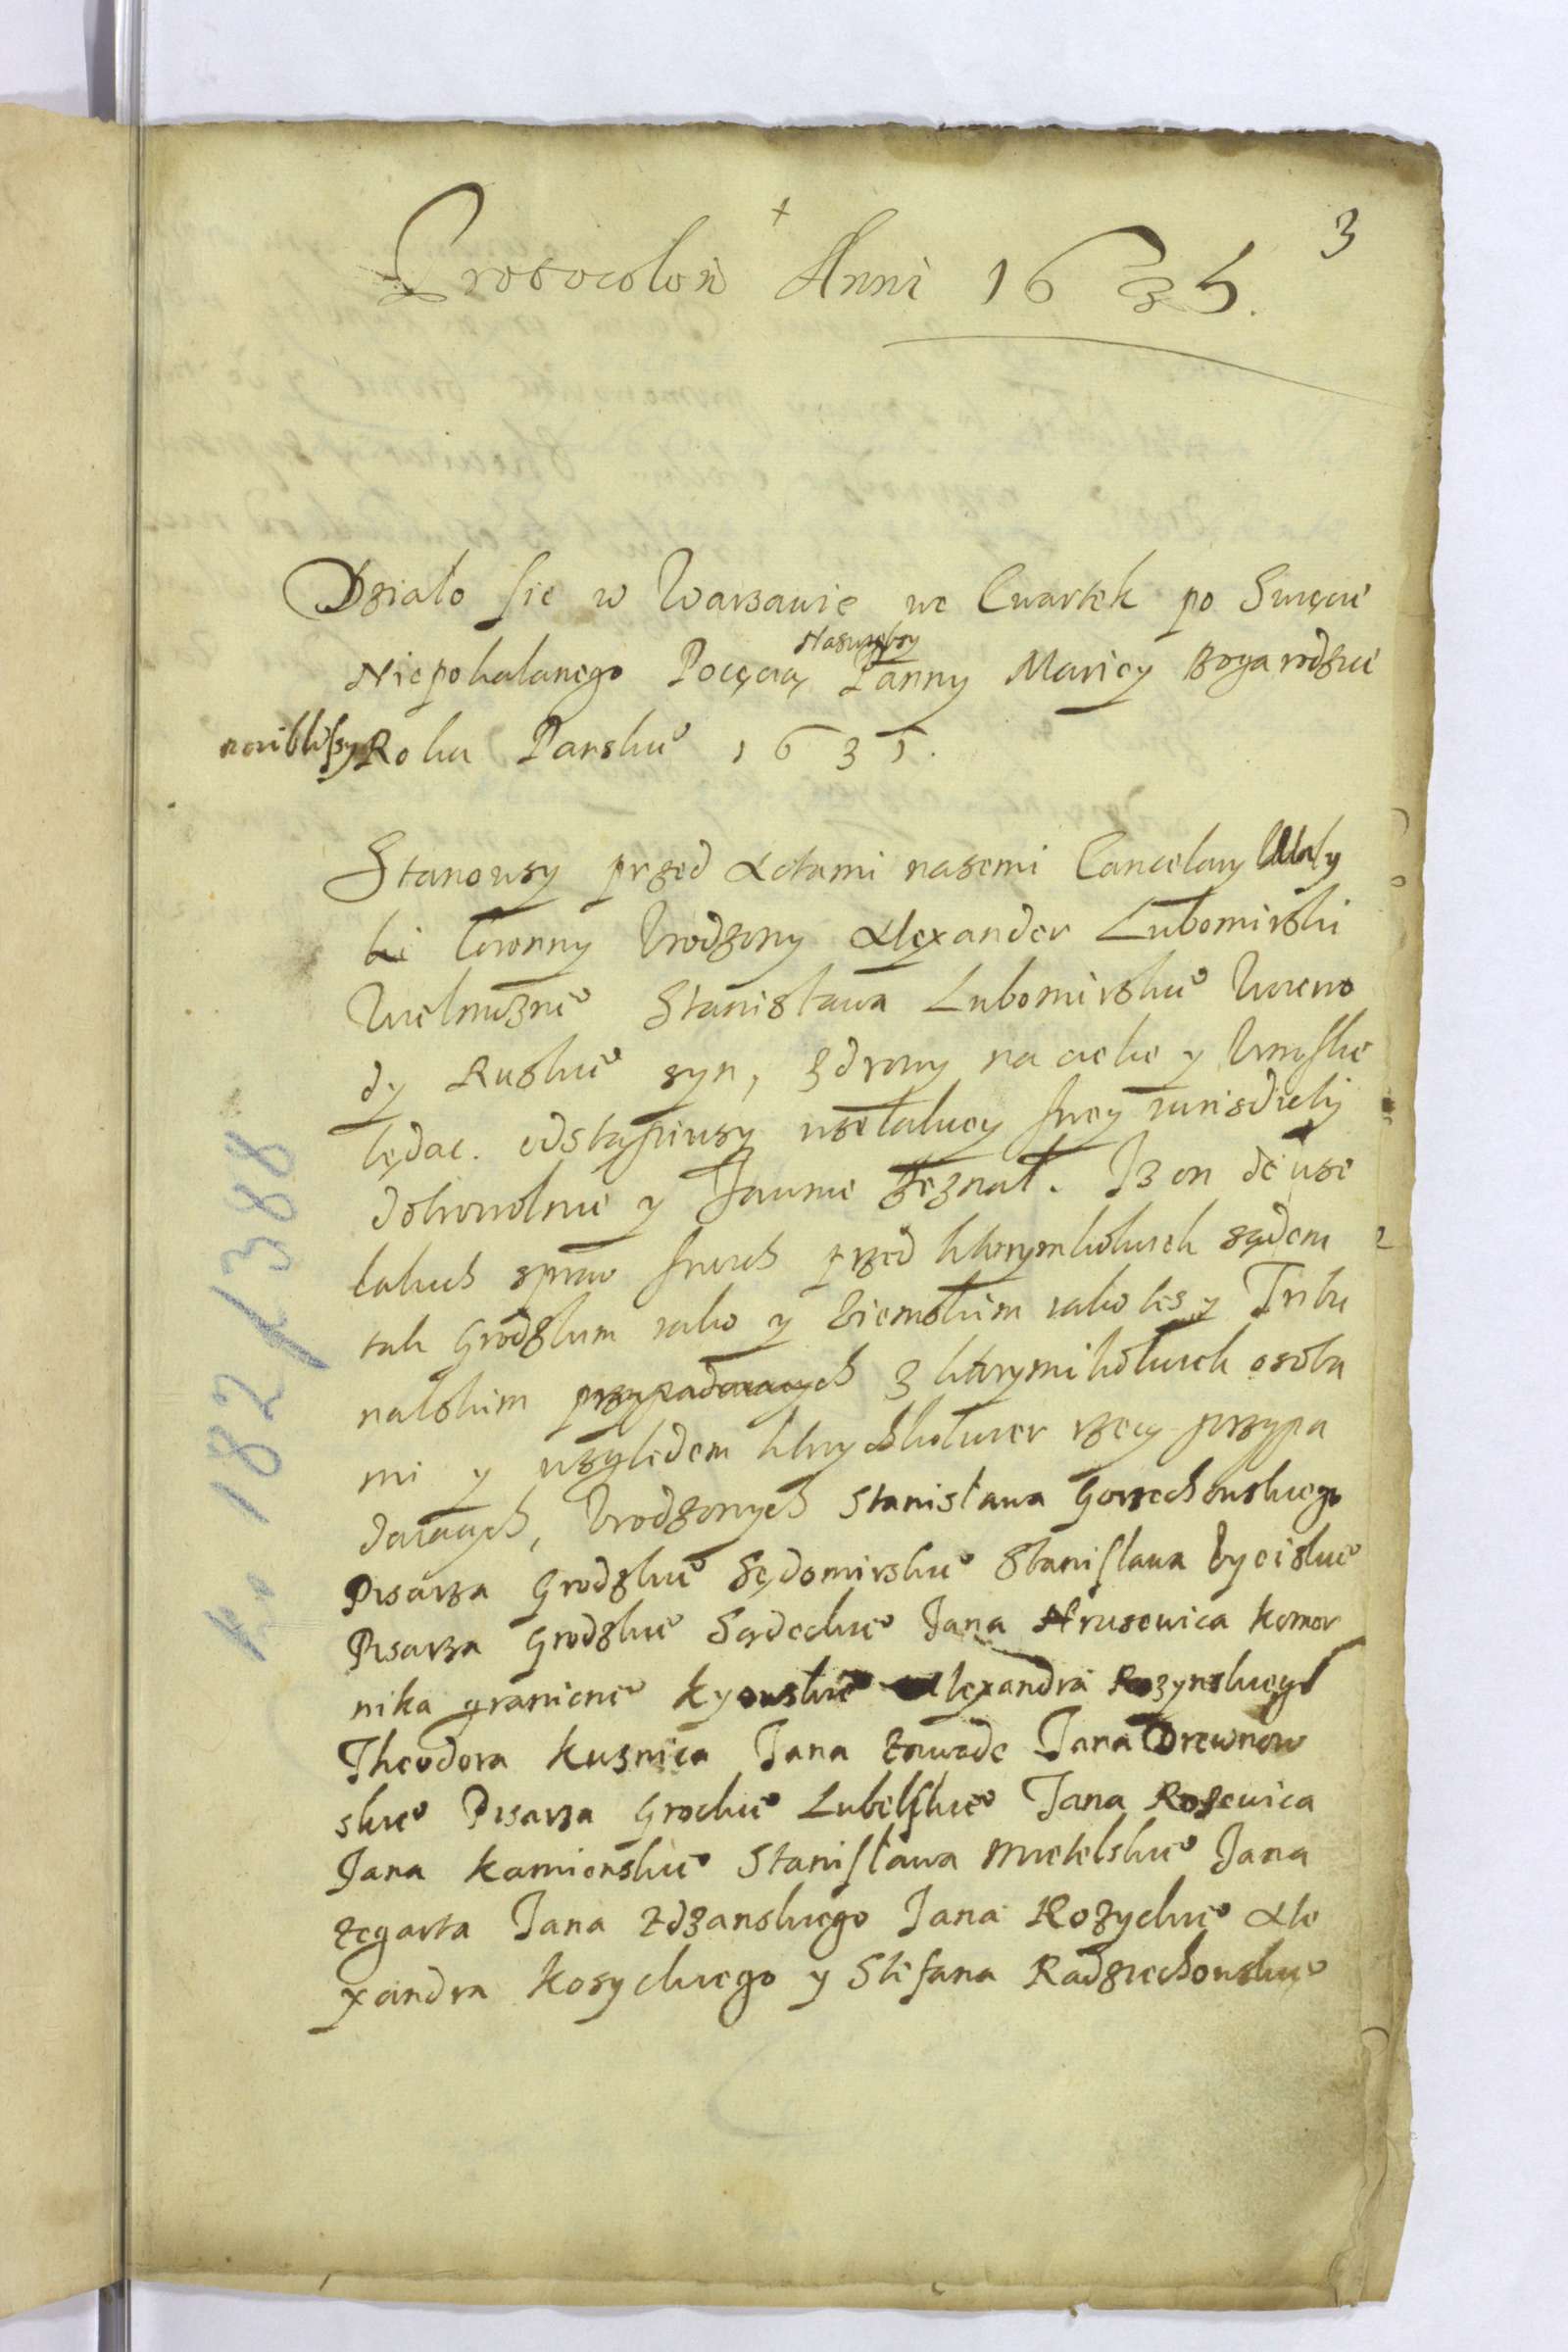 +
3
Protocolon Anni 1635.
Dzialo sie w Warzawie we Cwartek po Swięcie
Naswietszy
Niepokalanego Poczęcia Panny Mariey Bogarodzice
Roku Panskieo 1635.
Stanowsy przed Actami nasemi Cancelary
ki Coronny Urodzony Alexander Lubomirski
Wielmozneo Stanislawa Lubomirskieo Woiewo
dy Ruskieo syn, zdrowy na ciele y Umysle
będac. odstąpiwsy wselakiey swey iurisdictij
dobrowolnie y Jawnie zeznał. Iz on do wse
lakich spraw swoich przed ktorymkolwiek sądem
tak Grodzkim iako y Ziemskim iako tes y Tribu
nalskim z ktorymikolwiek osoba
mi y względem ktorychkolwiek rzecy przypa
daiacych, Urodzonych Stanisława Gorzechowskiego
Pisarza Grodzkieo Sędomirskieo Stanisława Zyciskieo
Pisarza Grodzkieo Sądeckieo Jana Hrusewica Komor
nika granicneo Kyowskieo Alexandra Rozynskiego
Theodora Kusnica Jana Zawade Jana Drewnow
skieo Pisarza Grockieo Lubelskieo Jana Rosewica
Jana Kamienskieo Stanisława Mietelskieo Jana
Zegarta Jana Zdzanskiego Jana Kozyckieo Ale
xandra Kosyckiego y Stefana Radzieiowskieo
182/388
2